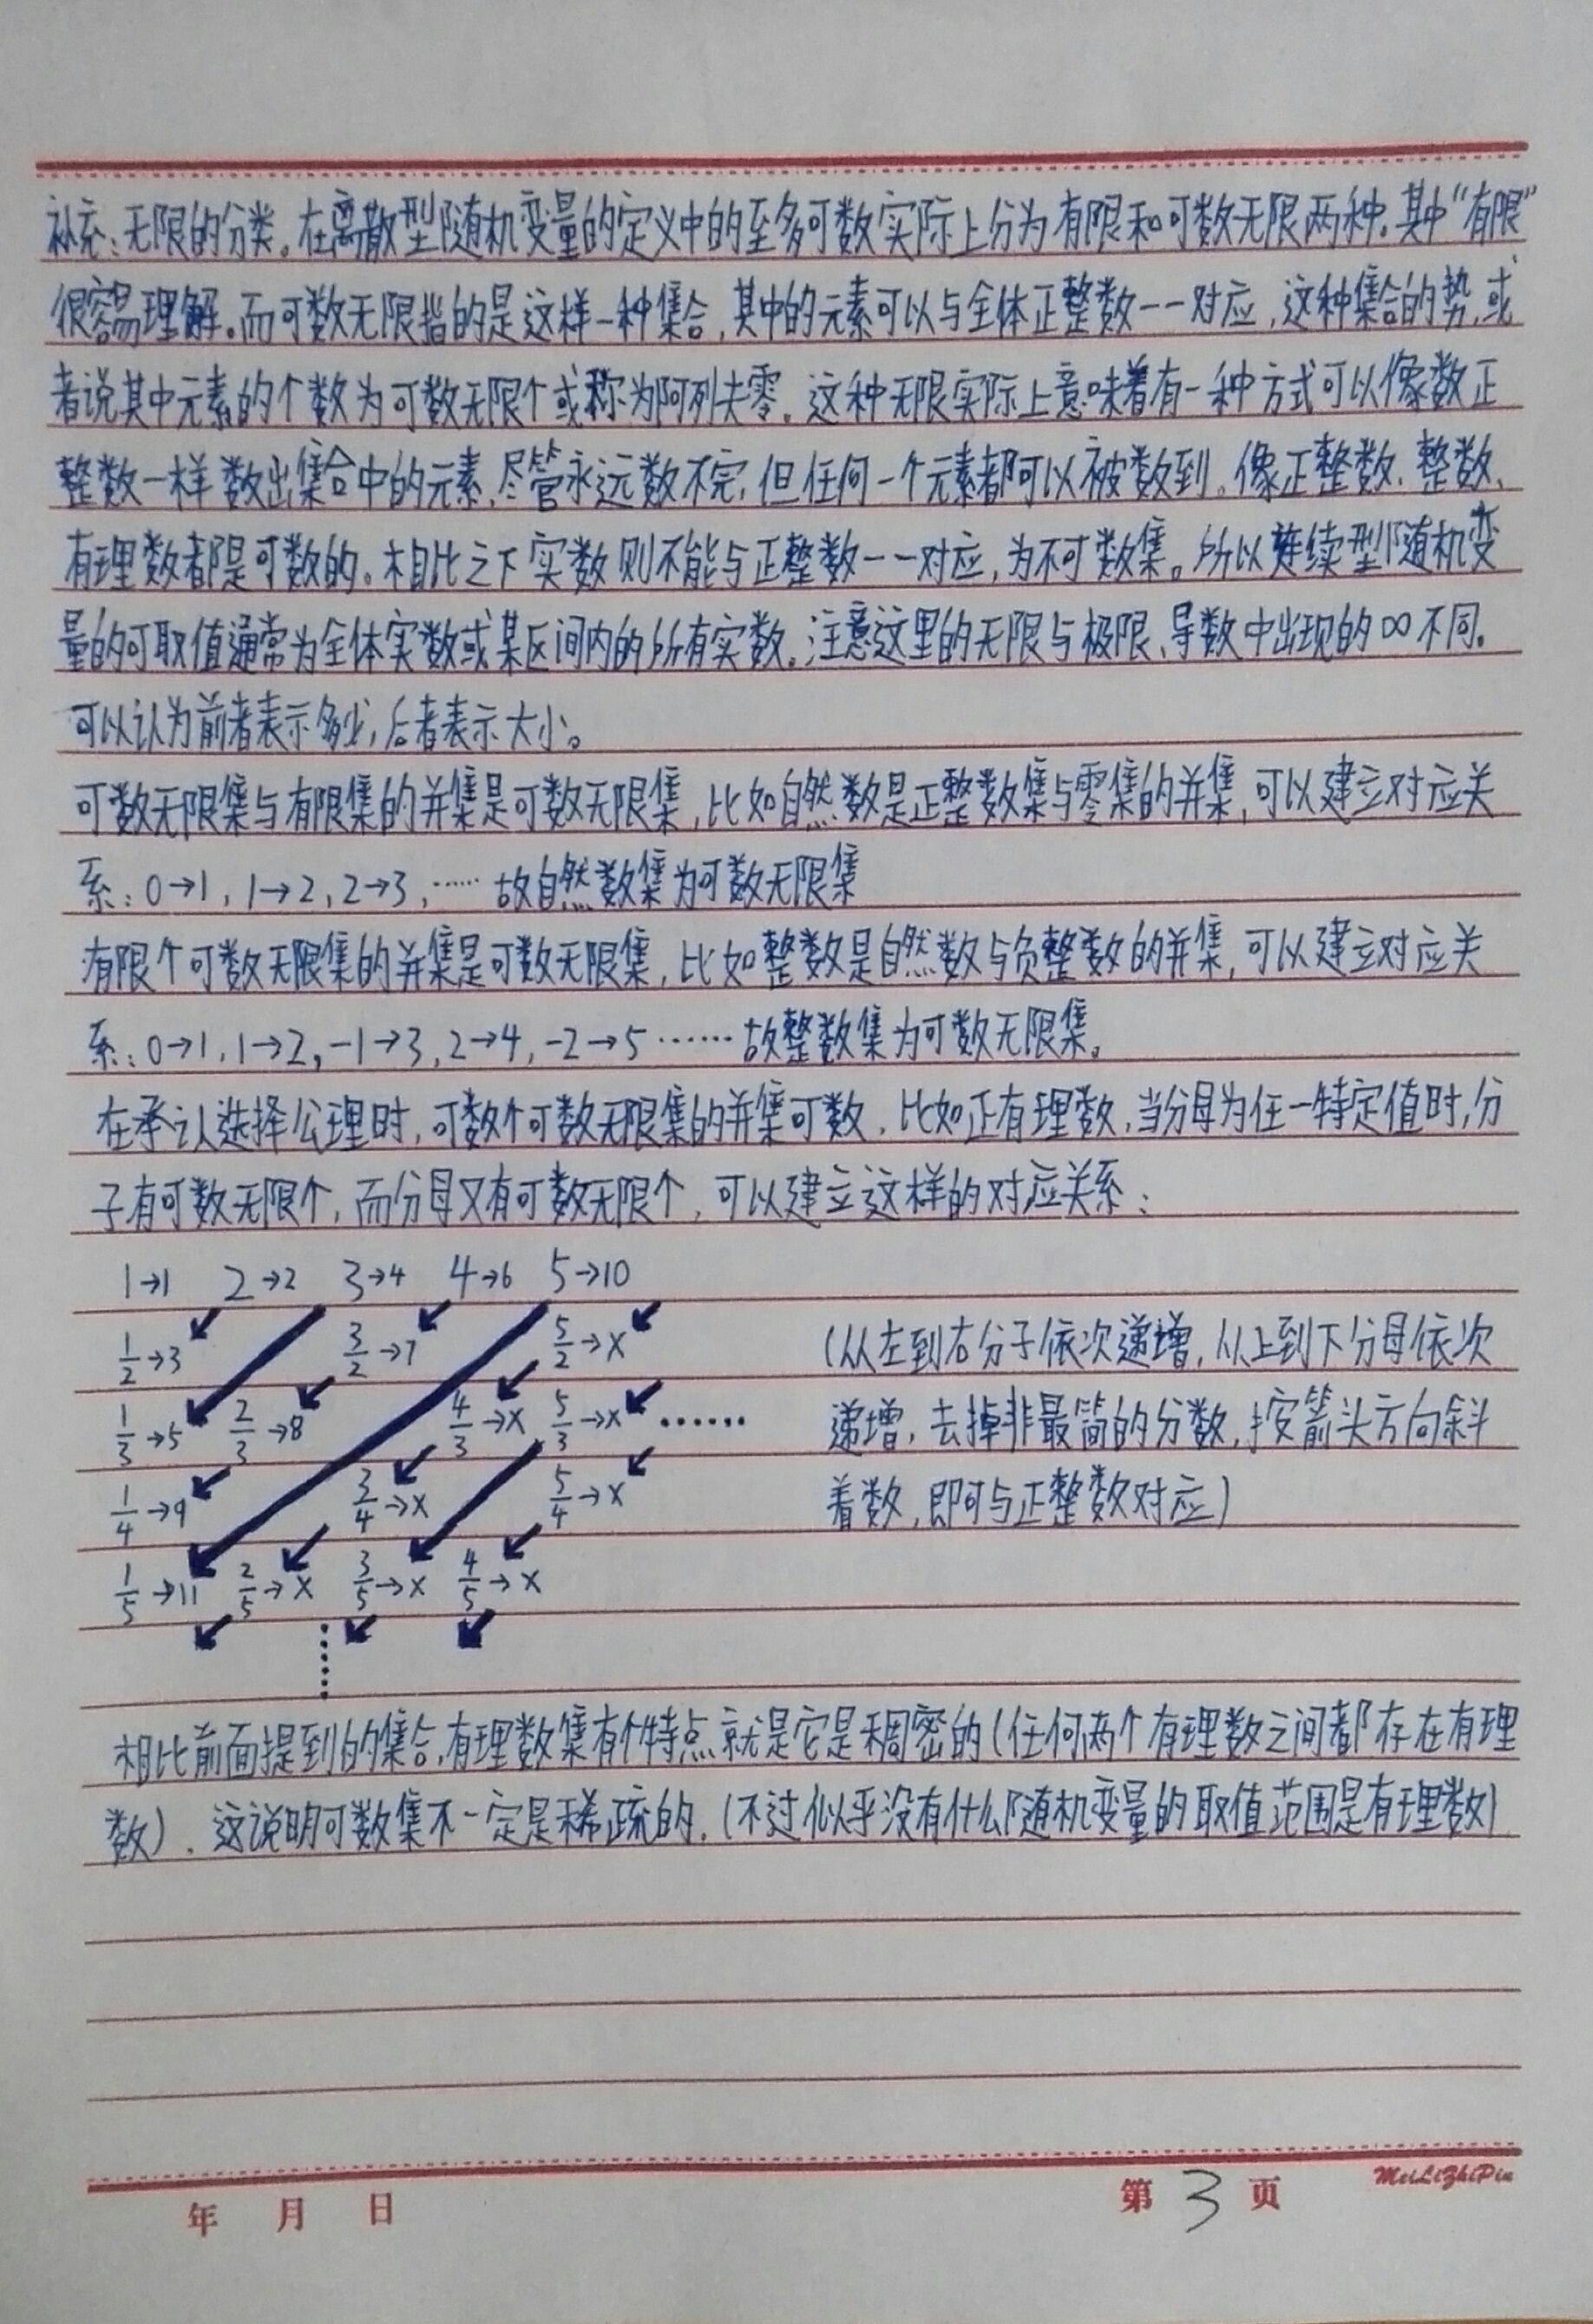 补充:无限的分类。在离散型随机变量的定义中的至多可数实际上分为有限和可数无限两种。其中“有限”
很容易理解。而可数无限指的是这样一种集合,其中的元素可以与全体正整数一一对应,这种集合的势,或
者说其中元素的个数为可数无限个或称为阿列夫零。这种无限实际上意味着有一种方式可以像数正
整数一样数出集合中的元素,尽管永远数不完,但任何一个元素都可以被数到。像正整数、整数、
有理数都是可数的。相比之下实数则不能与正整数一一对应,为不可数集。所以连续型随机变
量的可取值通常为全体实数或某区间内的所有实数。注意这里的无限与极限、导数中出现的∞不同。
可以认为前者表示多少,后者表示大小。
可数无限集与有限集的并集是可数无限集,比如自然数是正整数集与零集的并集,可以建立对应关
系:0→1,1→2,2→3,…… 故自然数集为可数无限集
有限个可数无限集的并集是可数无限集,比如整数是自然数与负整数的并集,可以建立对应关
系:0→1,1→2,-1→3,2→4,-2→5……故整数集为可数无限集。
在承认选择公理时,可数个可数无限集的并集可数。比如正有理数,当分母为任一特定值时,分
子有可数无限个,而分母又有可数无限个,可以建立这样的对应关系:
1→1 2→2 3→4 4→6 5→10
1/2→3 3/2→7 5/2→x (从左到右分子依次递增,从上到下分母依次
1/3→5 2/3→8 4/3→x 5/3→x …… 递增,去掉非最简的分数,按箭头方向斜
1/4→9 3/4→x 5/4→x 着数,即可与正整数对应)
1/5→11 2/5→x 3/5→x 4/5→x
相比前面提到的集合,有理数集有个特点就是它是稠密的(任何两个有理数之间都存在有理
数)。这说明可数集不一定是稀疏的。(不过似乎没有什么随机变量的取值范围是有理数)
年 月 日 第 3 页 MeiLiZhiPin